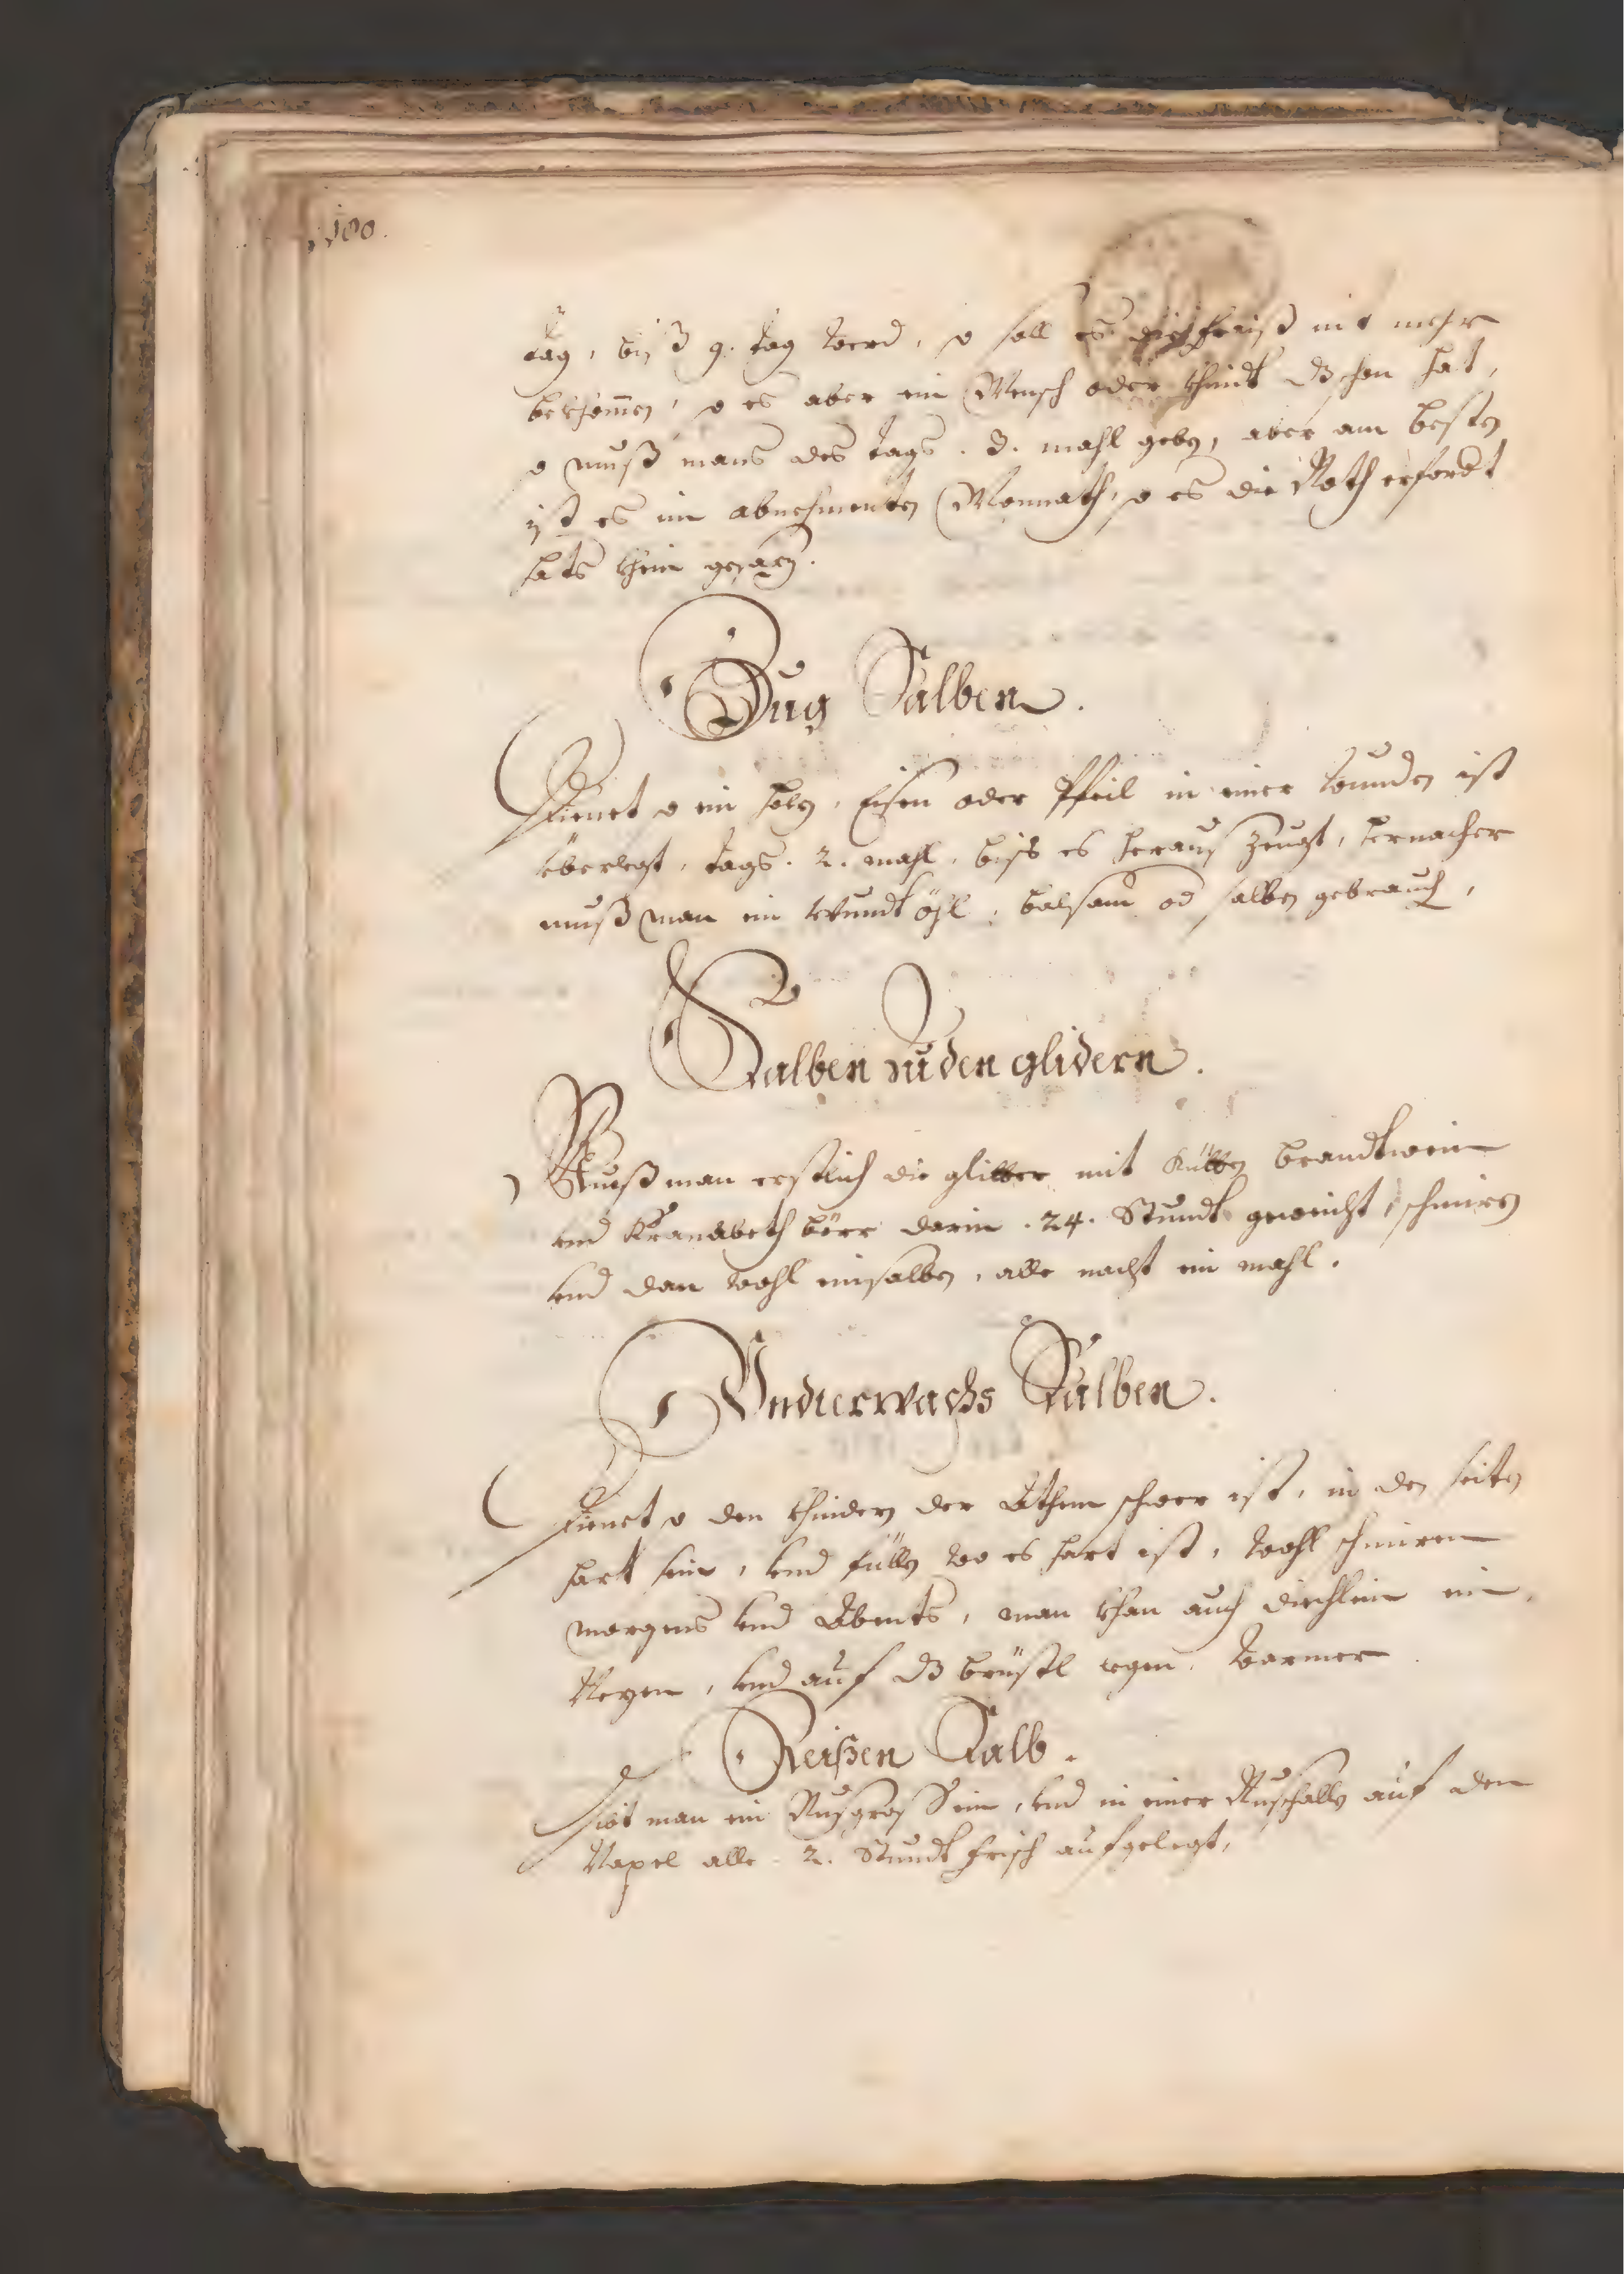 180.
tag, biß 9. tag werd, so soll es die fraiß nit mehr
bekhomen, so es aber ein Mensch oder Khindt dß schon hat,
so muß mans des tags . 3. mahl geben, aber am besten
ist es im abnehmenten Monnath, so es die Noth erfordt
hats khein
Zug Salben.
Dienet so ein holz, Eisen oder Pfeil in einer wunden ist
überlegt, tags. 2. mahl, biss es heraus zeugt, hernacher
muß man ein wundt öhl, balsam od salben gebrauch,
Salben zu den glidern.
Muß man erstlich die glitter mit brandtwein
und Kranabeth börr darin . 24. Stundt geweicht, schmiren
und dan wohl einsalben, alle nacht ein mahl.
Undterwachs Salben.
Dienet so den Khindern der Athem schwer ist, in den seiten
hart sein, und wo es hart ist, wohl schmiren
morgens und Abents, man khan auch diechlein ein
Nezen, und auf dß brüstl legen, warmer
Reißen Salb.
Gibt man ein Nusgros ein, und in einer Nuschallen auf den
Napel alle . 2. Stundt frisch aufgelegt,